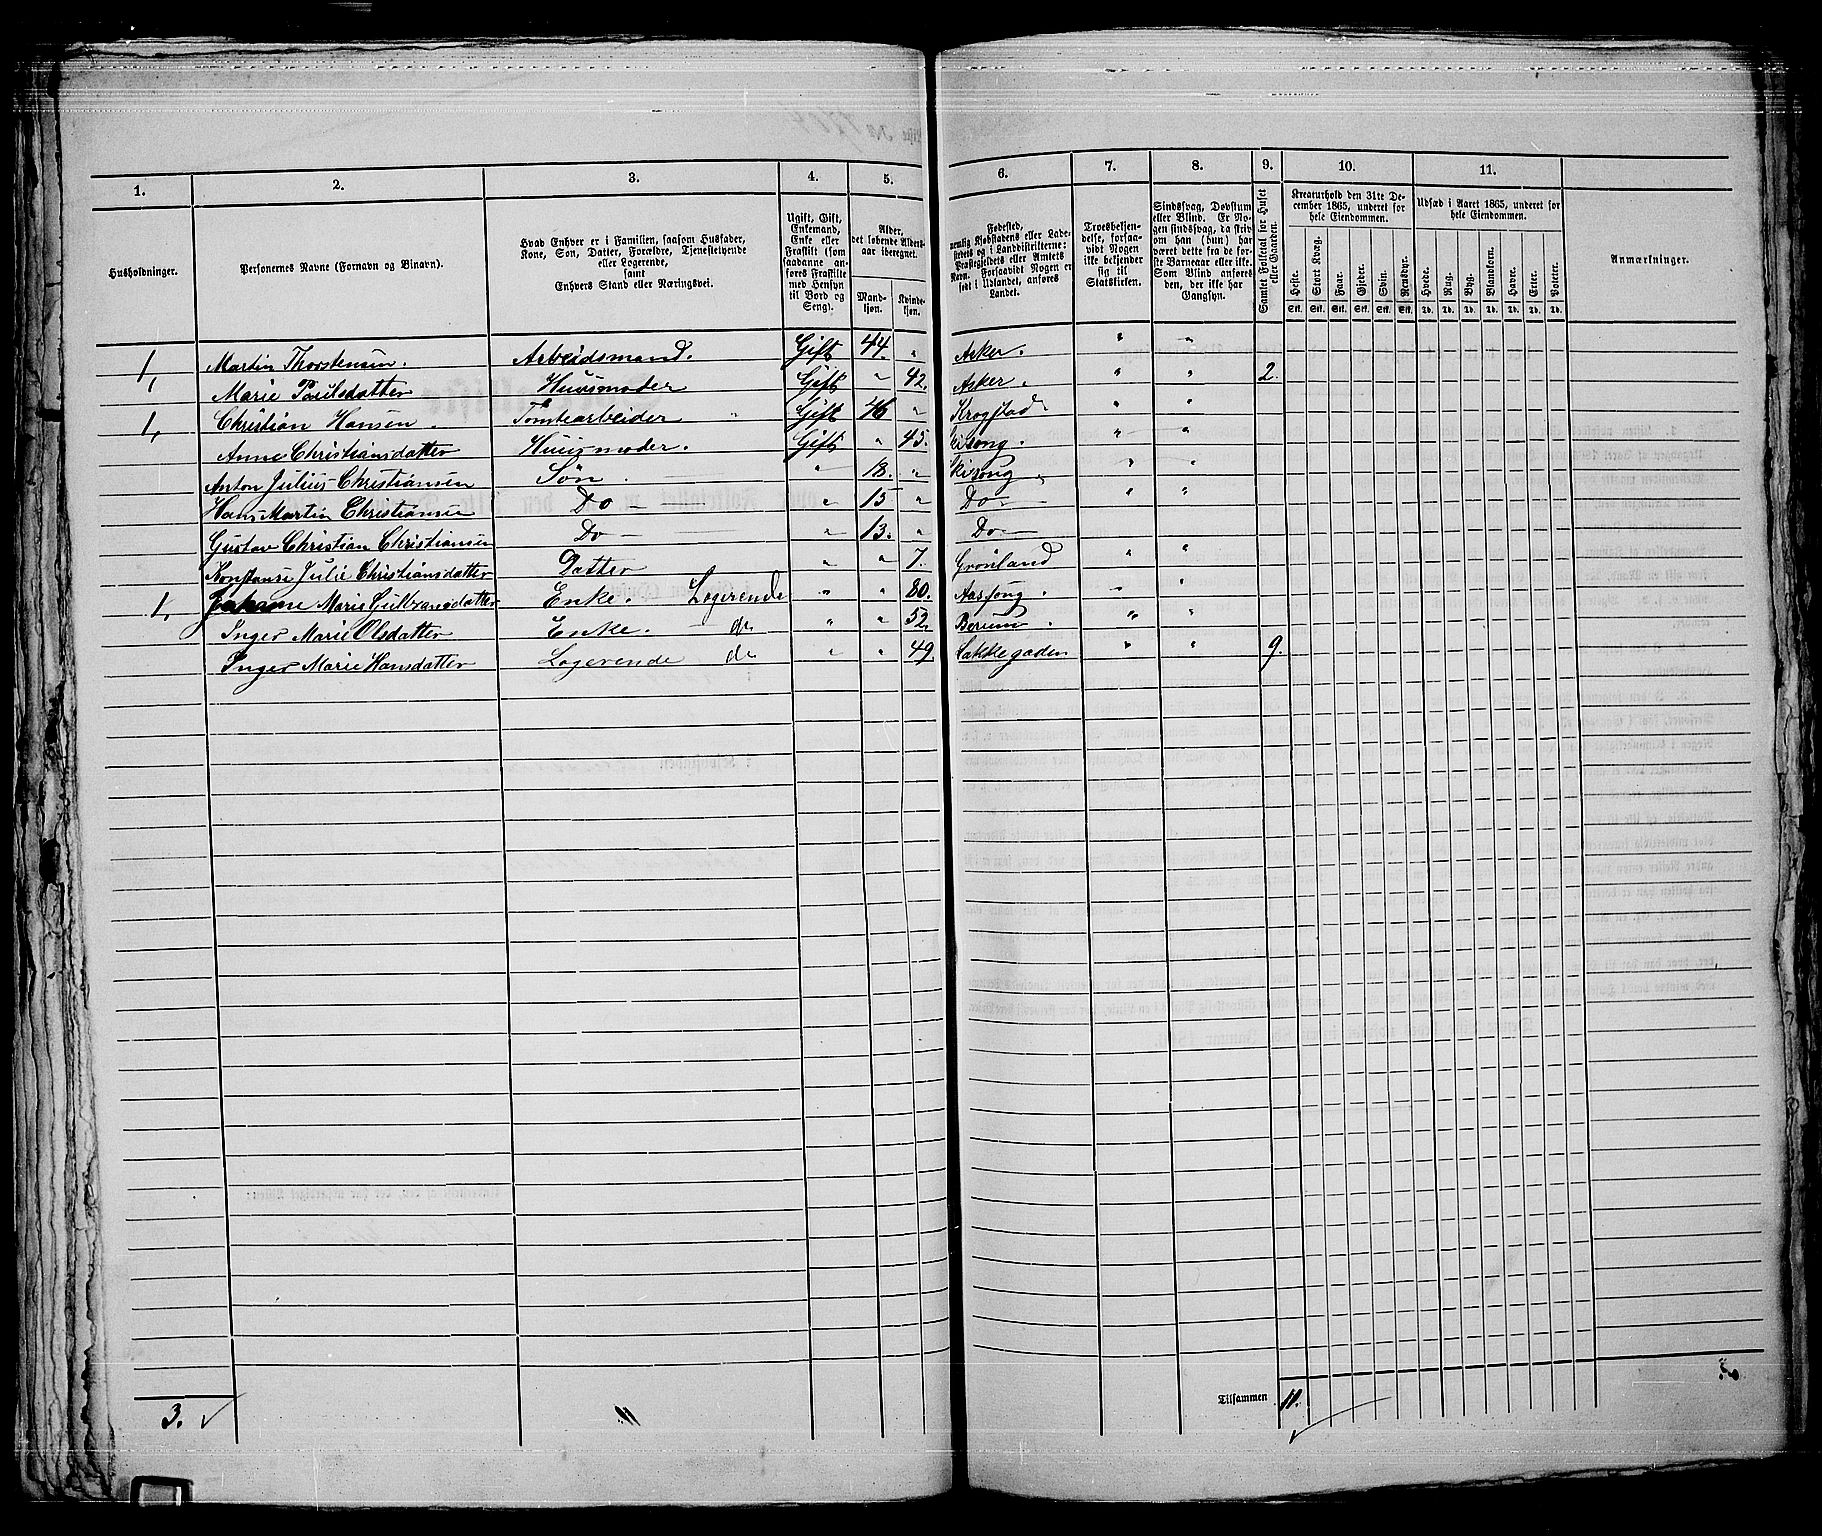 1. 2. 3. 4. 5. 6. 7. 8. 9. 10. 11.
Husholdninger.
Personernes Navne (Fornavn og Binavn).
Hvad Enhver er i Familien, saasom Husfader, Kone, Søn, Datter, Forældre, Tjenestetyende eller Logerende, samt Enhvers Stand eller Næringsvei.
Ugift, Gift, Enkemand, Enke eller Fraskilt (som saadanne anføres Fraskilte med Hensyn til Bord og Seng).
Alder, det løbende Aldersaar iberegnet.
Mandkjøn. Kvindekjøn.
Fødested, nemlig Kjøbstadens eller Ladestedets og i Landdistrikterne: Præstegjeldets eller Amtets Navn. Forsaavidt Nogen er født i Udlandet, anføres Landet.
Troesbekjendelse, forsaavidt Nogen ikke bekjender sig til Statskirken.
Sindssvag, Døvstum eller Blind. Er Nogen sindssvag, da skrives om han (hun) har været dette fra de første Barneaar eller ikke. Som Blind anføres den, der ikke har Gangsyn.
Samlet Folketal for Huset eller Gaarden.
Kreaturhold den 31te December 1865, underet for hele Eiendommen.
Heste. Stort Kvæg. Faar. Gjeder. Svin. Rensdyr.
Stk. Stk. Stk. Stk. Stk. Stk.
Udsæd i Aaret 1865, underet for hele Eiendommen.
Hvede. Rug. Byg. Blandkorn. Havre. Erter. Poteter.
Td. Td. Td. Td. Td. Td. Td.
Anmærkninger.
1, Martin Thorstensen. Arbeidsmand. Gift 44. " Asker. " "
Marie Paulsdatter Huusmoder Gift " 42. Asker. " " 2.
1, Christian Hansen. Tomtearbeider " Gift 46 " Krogstad " "
Anne Christiansdatter Huusmoder. Gift " 45. " "
Anton Julius Christiansen Søn. " 18. " " "
Hans Martin Christiansen Do — " 15 " Do — " "
Gustav Christian Christiansen Do — " 13. " Do —
Konstanse Julie Christiansdatter Datter " " 7. Grønland " "
1, Johanne Marie Gulbransdatter Enke. Logerende " " 80. " "
Inger Marie Olsdatter Enke. — do " " 52. Berum. " "
Inger Marie Hansdatter Logerende do " " 49. Lakkegaden " " 9.
3. ✓ 11 Tilsammen 11.